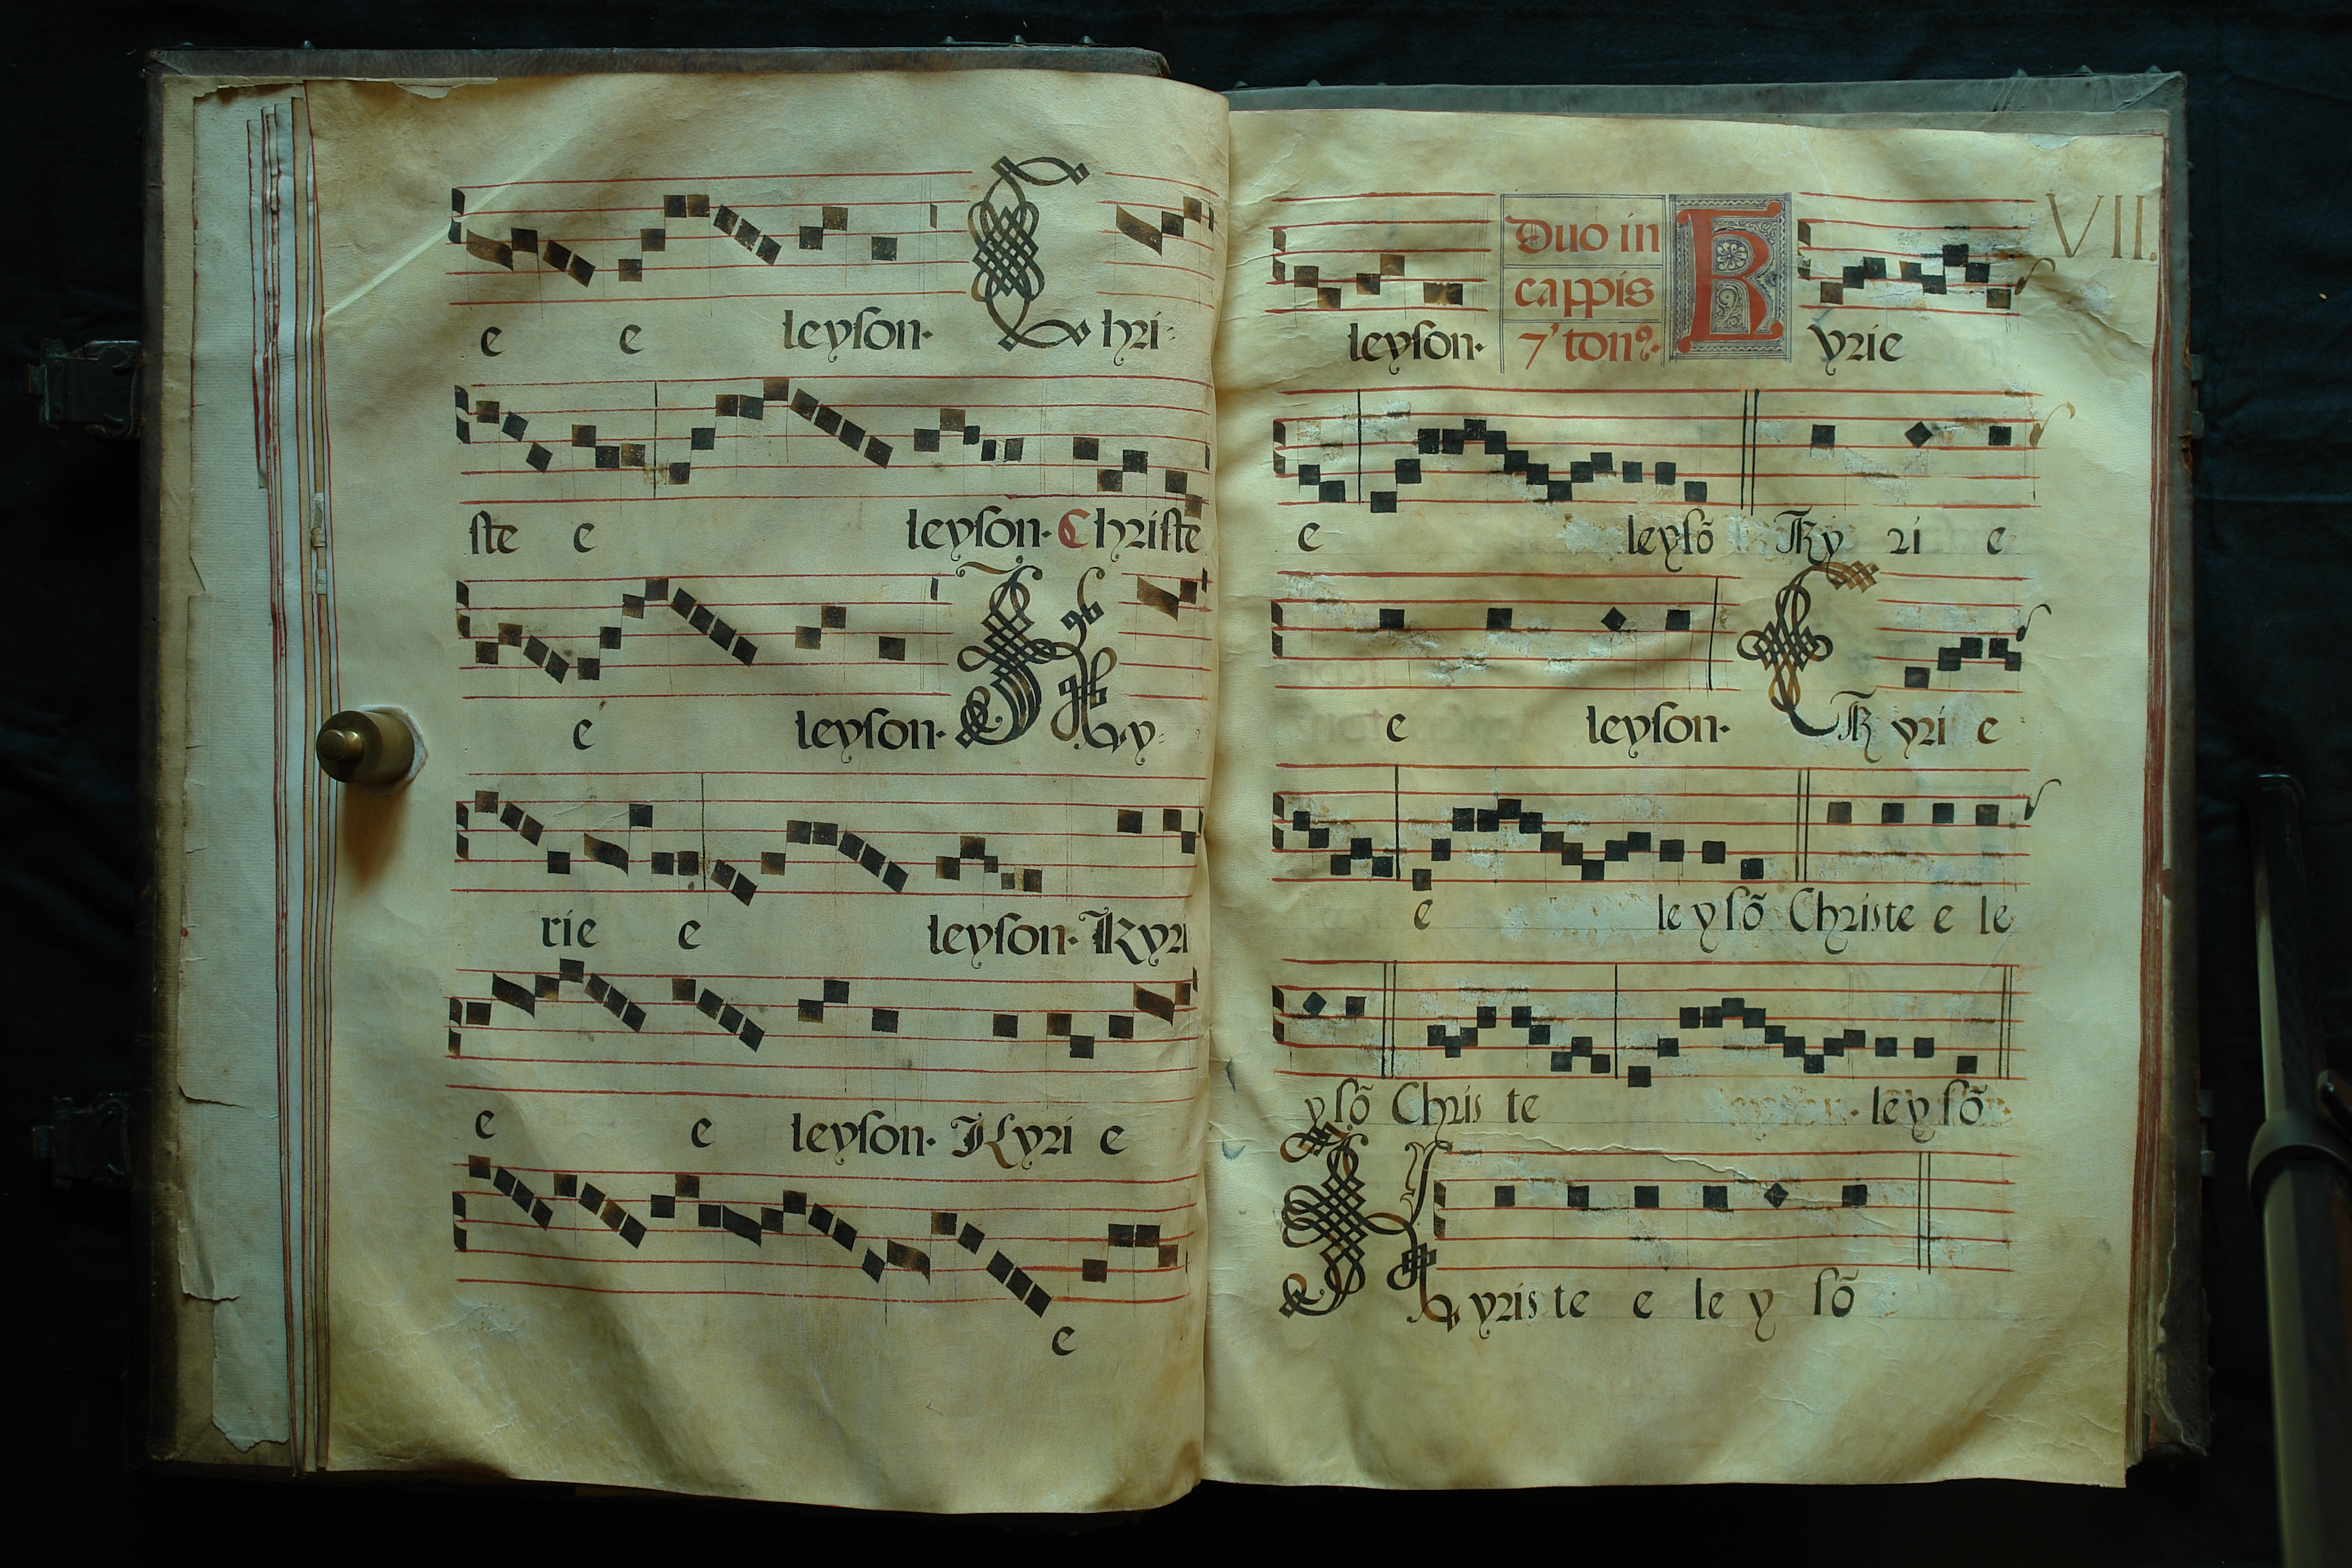 e e leyson. Chri-
ste e leyson. Christe
e leyson. Ky-
rie e leyson. Kyri
e e leyson. Kyri e
e
VII.
leyson. Duo in cappis 7' tonꝰ. Kyrie
e leysõ Ky ri e
e leyson. Kyri e
e leysõ Christe e le
ysõ Chris te leysõ
Kyriste e le y sõ